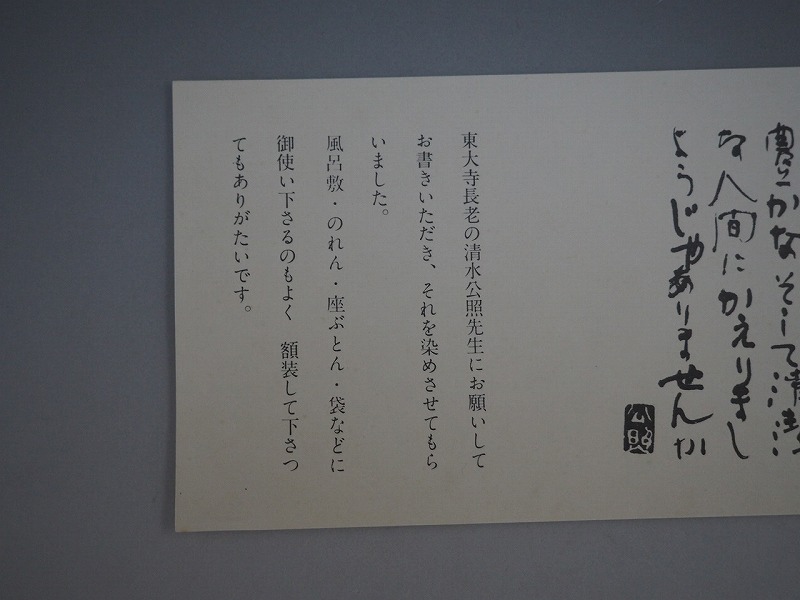 豊かなそして清潔
な人間にかえりまし
ようじゃありませんか
公照
東大寺長老の清水公照先生にお願いして
お書きいただき、それを染めさせてもら
いました。
風呂敷・のれん・座ぶとん・袋などに
御使い下さるのもよく 額装して下さつ
てもありがたいです。